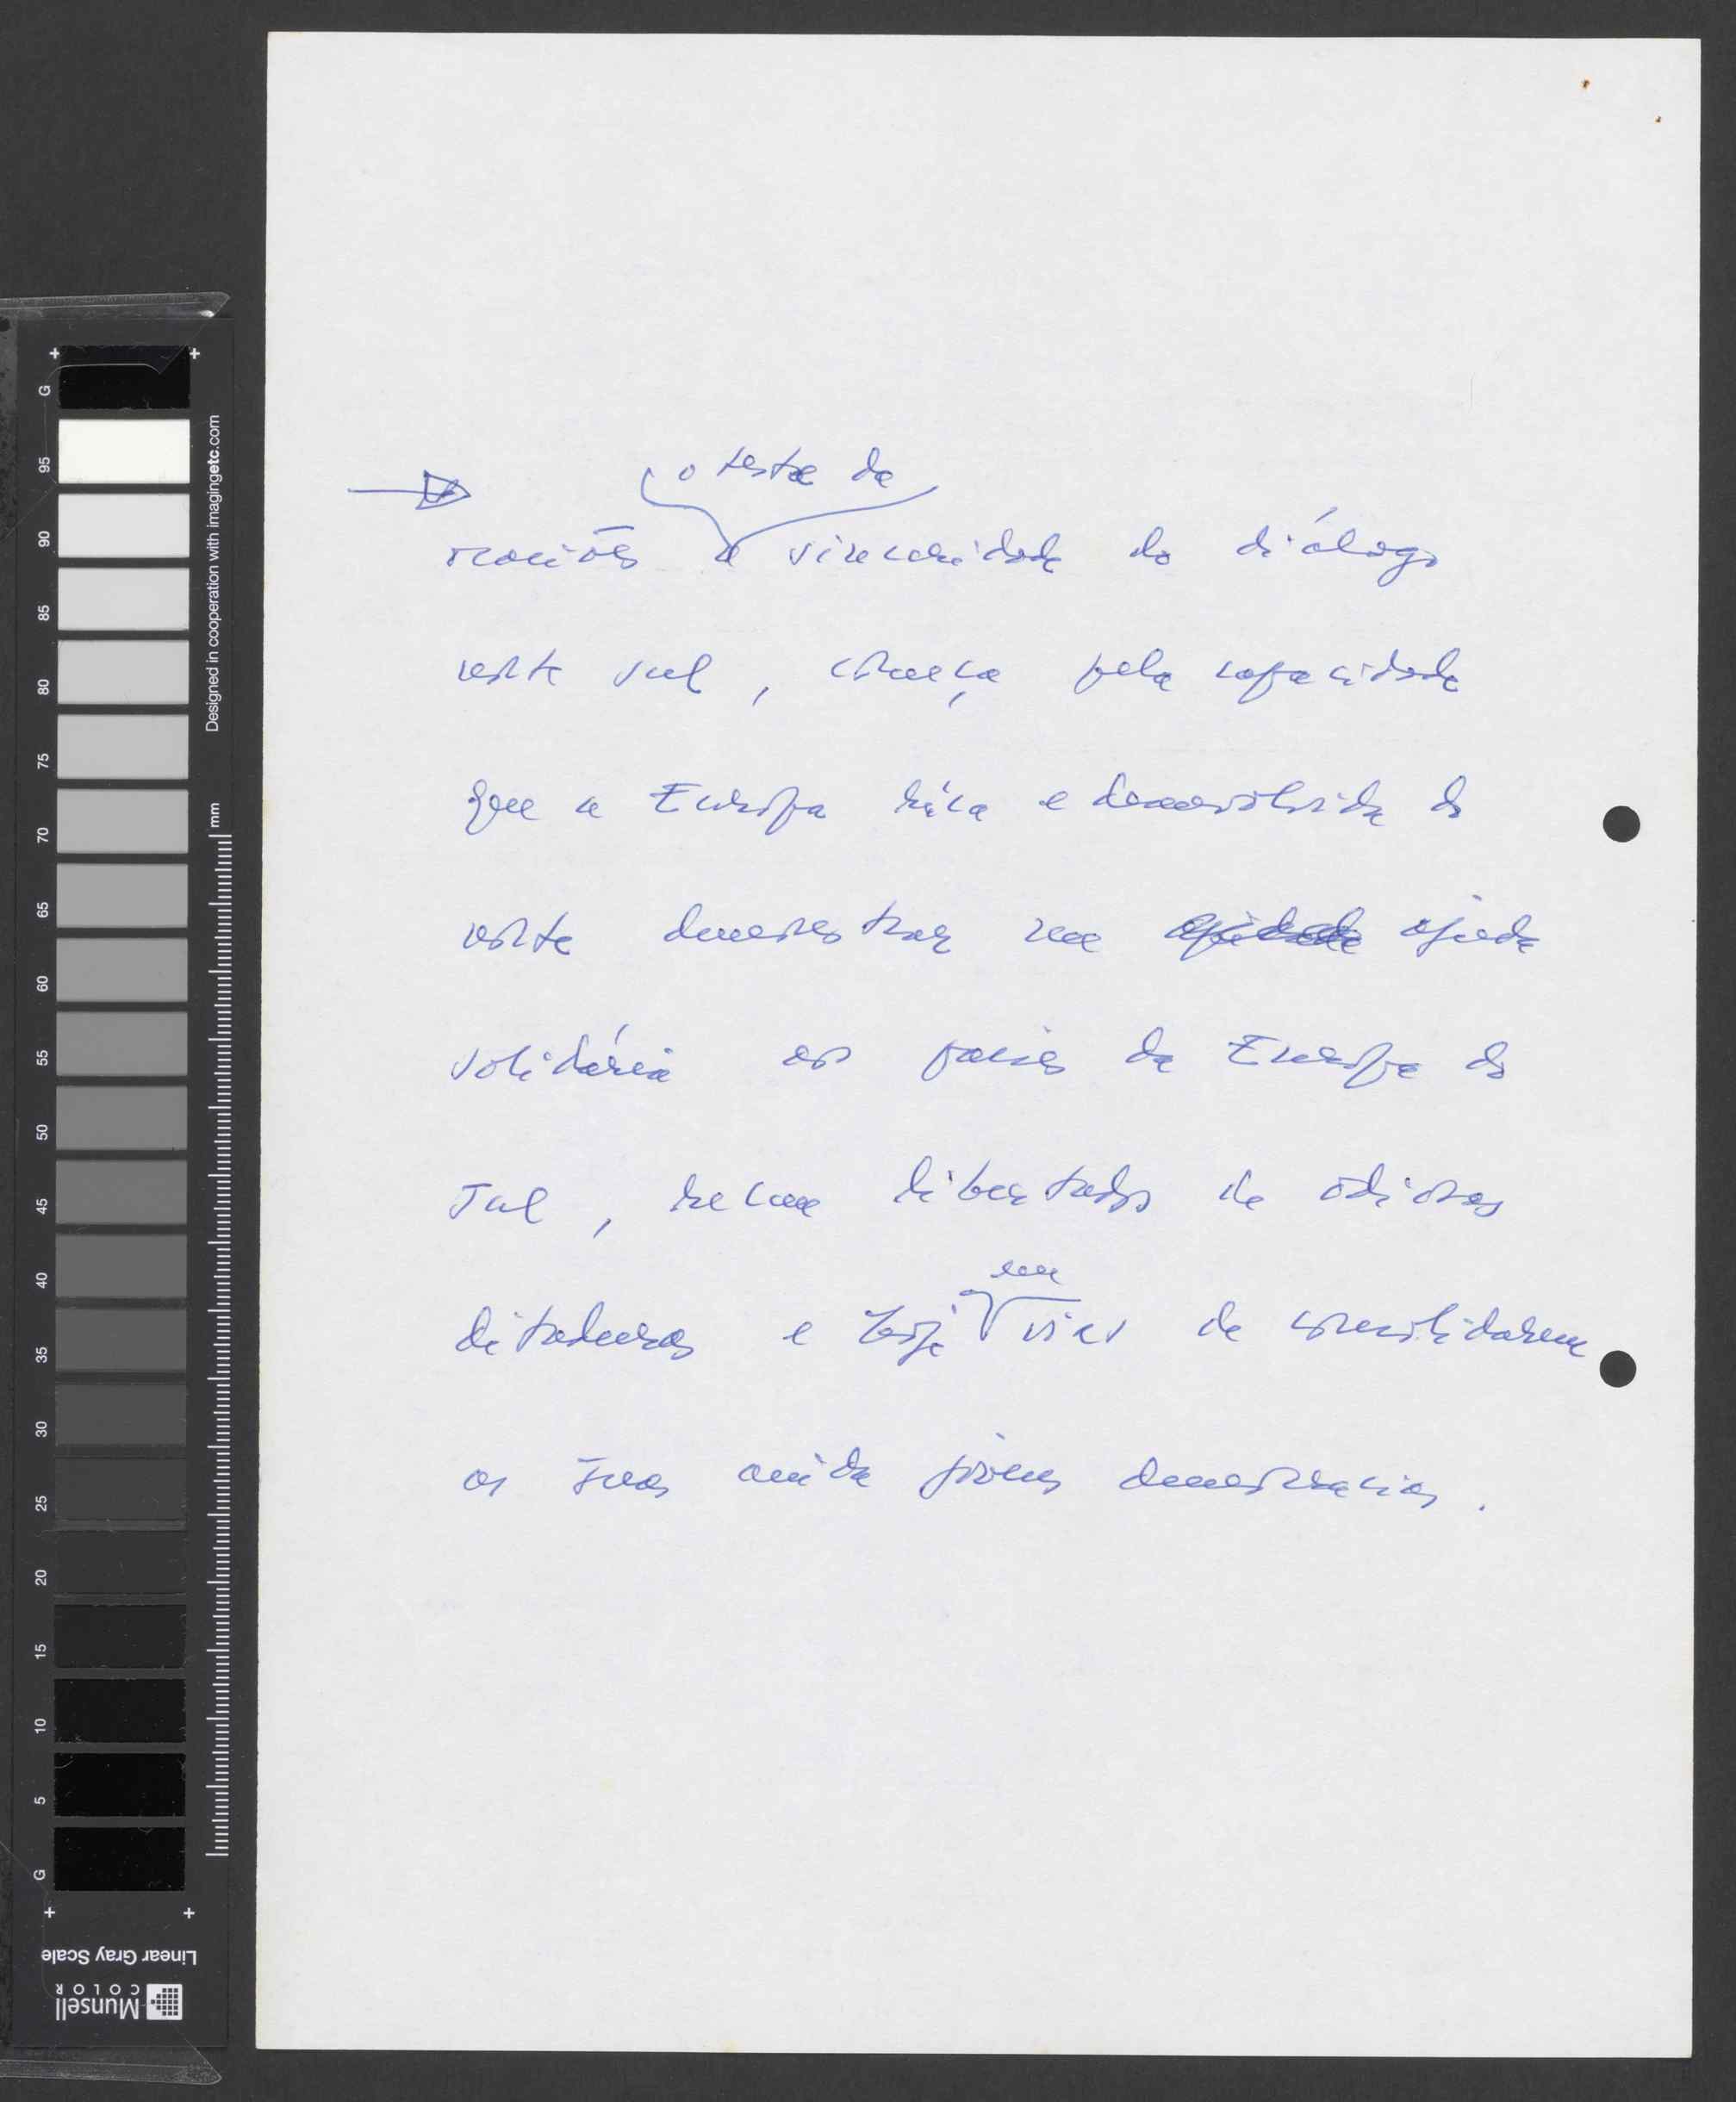 o teste da
nações a sinceridade do diálogo
norte sul, começa pela capacidade
que a Europa rica e desenvolvida do
norte demonstrar na ajuda
solidária aos países da Europa do
Sul, recem libertados de odiosas
em
ditaduras e hoje vias de consolidarem
as suas ainda jovens democracias.
G 95 90 85 80 75 70 65 60 55 50 45 40 35 30 25 20 15 10 5 G
Designed in cooperation with imagingetc.com
mm
Linear Gray Scale
Munsell
COLOR